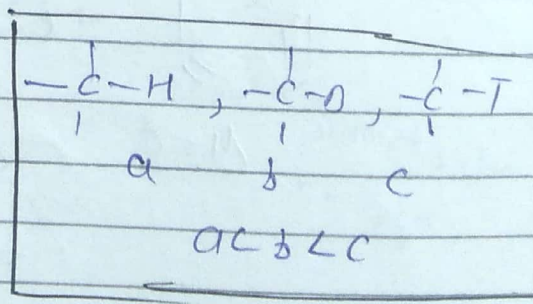 -C-H, -C-D, -C-T
a b c
a < b < c